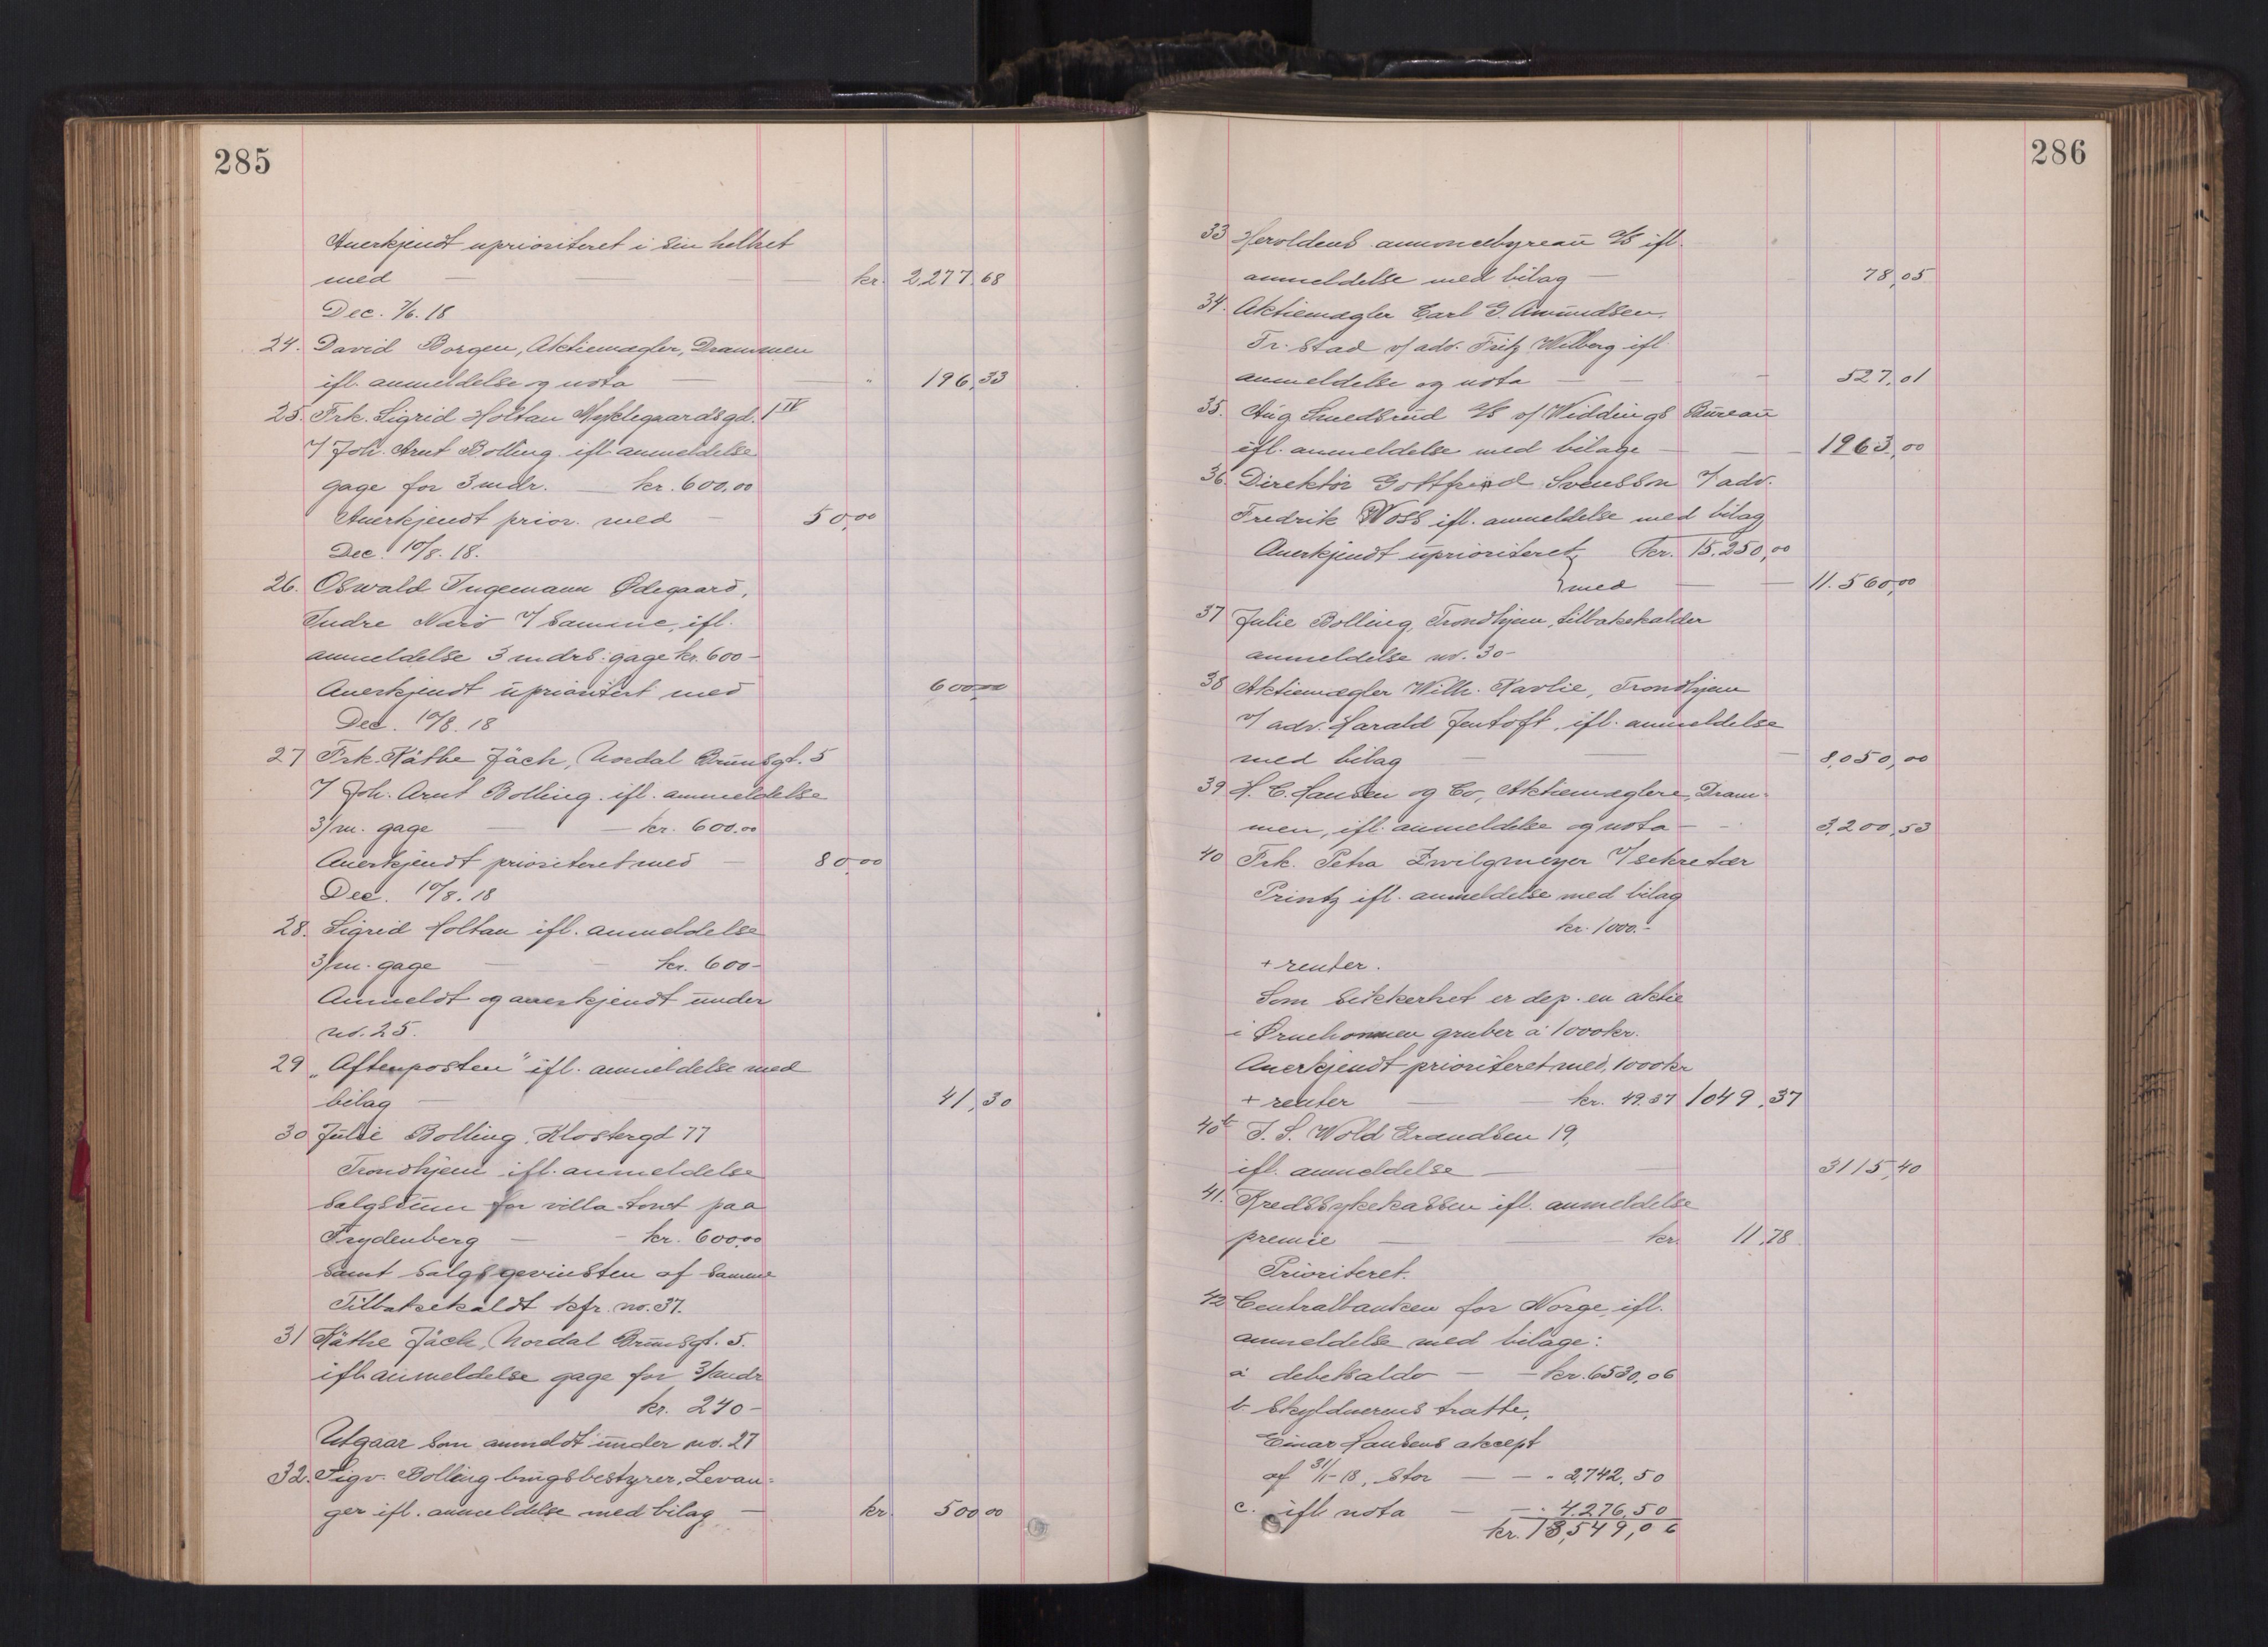 285
Anerkjendt uprioriteret i sin helhet
med — kr. 2277,68
Dec. 7/6. 18
24. David Borgen, Aktiemægler, Drammen
ifl. anmeldelse og nota — " 196,33
25. Frk. Sigrid Holtan Nyklegaardsgd. 1 IV
v/ Joh. Arnt Bolling ifl. anmeldelse
gage for 3 mdr. — kr. 600,00
Anerkjendt prior. med — 50,00
Dec. 10/8. 18.
26. Oswald Ingemann Ødegaard,
Indre v/ samme, ifl.
anmeldelse 3 mdrs. gage kr. 600-
Anerkjendt uprioritert med 600,00
Dec. 10/8. 18
27 Frk. Käthe Jäch, Nordal Brunsgt. 5
v/ Joh. Arnt Bolling. ifl. anmeldelse
3/m. gage — kr. 600.00
Anerkjendt prioriteret med — 80,00
Dec. 10/8. 18
28. Sigrid Holtan ifl. anmeldelse
3/m. gage — kr. 600-
Anmeldt og anerkjendt under
no. 25.
29 „Aftenposten" ifl. anmeldelse med
bilag — 41,30
30 Julie Bolling, Klostergd 77
Trondhjem ifl. anmeldelse
salgssum for villa-tomt paa
Frydenberg — kr. 600,00
samt salgsgevinsten af samme
Tilbakekaldt kfr. no. 37.
31 Käthe Jäch, Nordal Brunsgt. 5.
ifl. anmeldelse gage for 3/mdr
kr. 240-
Utgaar som anmeldt under no. 27
32. Sigv. Bolling brugsbestyrer, Levan-
ger ifl. anmeldelse med bilag — kr. 500 00
286
33 Heroldens annoncebyreau A/S ifl.
anmeldelse med bilag — 78,05
34. Aktiemægler Carl G. Amundsen,
Fr. stad v/ adv. Fritz Wilberg ifl.
anmeldelse og nota — 527,01
35. Aug Smedsrud A/S v/ Widdings Bureau
ifl. anmeldelse med bilage — 1963,00
36. Direktør Gottfried Svensson v/ adv.
Fredrik Voss ifl. anmeldelse med bilag
Anerkjendt uprioriteret, kr. 15.250,00
med — 11.560,00
37 Julie Bolling, Trondhjem, tilbakekalder
anmeldelse no. 30-
38 Aktiemægler Wilh. Kavlie, Trondhjem
v/ adv. Harald Jentoft, ifl. anmeldelse
med bilag — 8,050,00
39 H. C. Hansen og Co, Aktiemæglere, Dram-
men, ifl. anmeldelse og nota — 3,200,53
40 Frk. Petra Zwilgmeyer v/ sekretær
Printz ifl. anmeldelse med bilag
kr. 1000.-
+ renter.
Som sikkerhet er dep. en aktie
i gruber à 1000 kr.
Anerkjendt prioriteret med, 1000 kr
+ renter — kr. 49.37 1049,37
40b J. S. Wold Erandsen 19,
ifl. anmeldelse — 3115,40
41. Kredssykekassen ifl. anmeldelse
premie — kr. 11,78.
Prioriteret.
42 Centralbanken for Norge, ifl.
anmeldelse med bilage:
a debetsaldo — kr. 6530,06
b. skyldnerens tratte,
Einar Hansens aksept
af 31/1-18, stor — " 2,742.50
c. ifl. nota — " 4.276,50
kr. 13,549,06